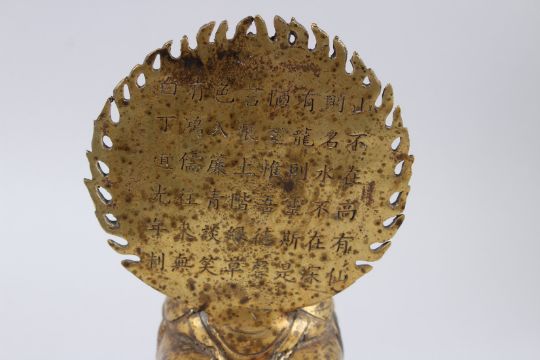 山不在高有仙
則名水不在深
有龍則靈斯是
陋室惟吾德馨
苔痕上階綠草
色入簾青談笑
有鴻儒往來無
白丁光年制